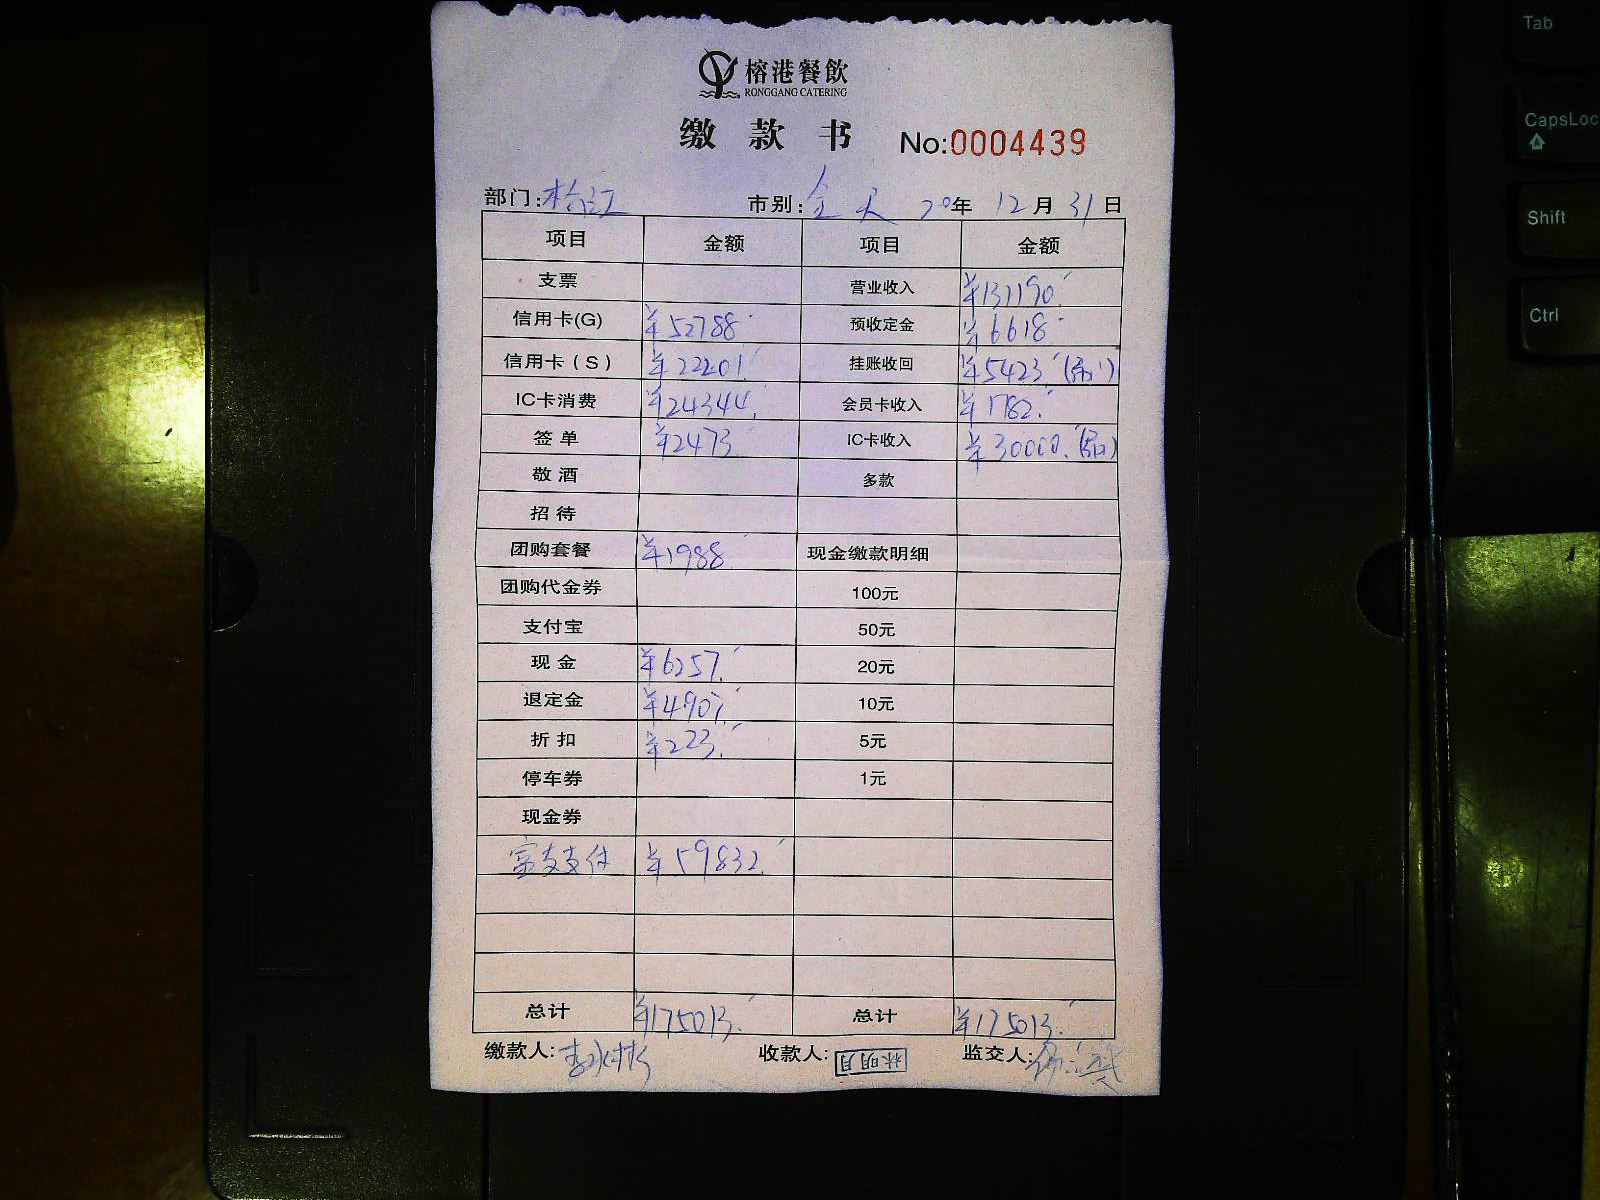 榕港餐飲
RONGGANG CATERING
缴款书 No:0004439
部门: 市别:全天 20年 12月 31日
项目 金额 项目 金额
支票 营业收入 ¥131190.
信用卡(G) ¥52788. 预收定金 ¥6618.
信用卡(S) ¥22201. 挂账收回 ¥5423.
IC卡消费 ¥24344. 会员卡收入 ¥1782.
签单 ¥2473. IC卡收入 ¥30000.
敬酒 多款
招待
团购套餐 ¥1988. 现金缴款明细
团购代金券 100元
支付宝 50元
现金 ¥6257. 20元
退定金 ¥4907. 10元
折扣 ¥223. 5元
停车券 1元
现金券
富友支付 ¥59832.
总计 ¥175013. 总计 ¥175013.
缴款人: 收款人:林明月 监交人:
Tab
CapsLoc
Shift
Ctrl